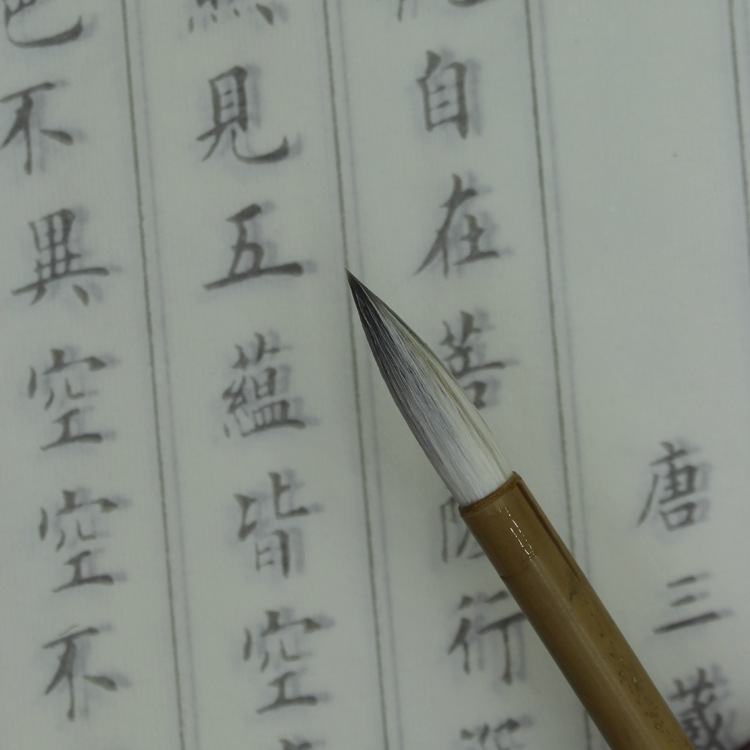 唐三藏
自在菩薩行
見五蘊皆空
色不異空空不